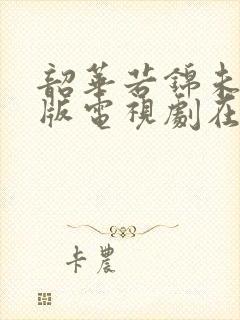 韶華若錦未
版電視劇在
卡農